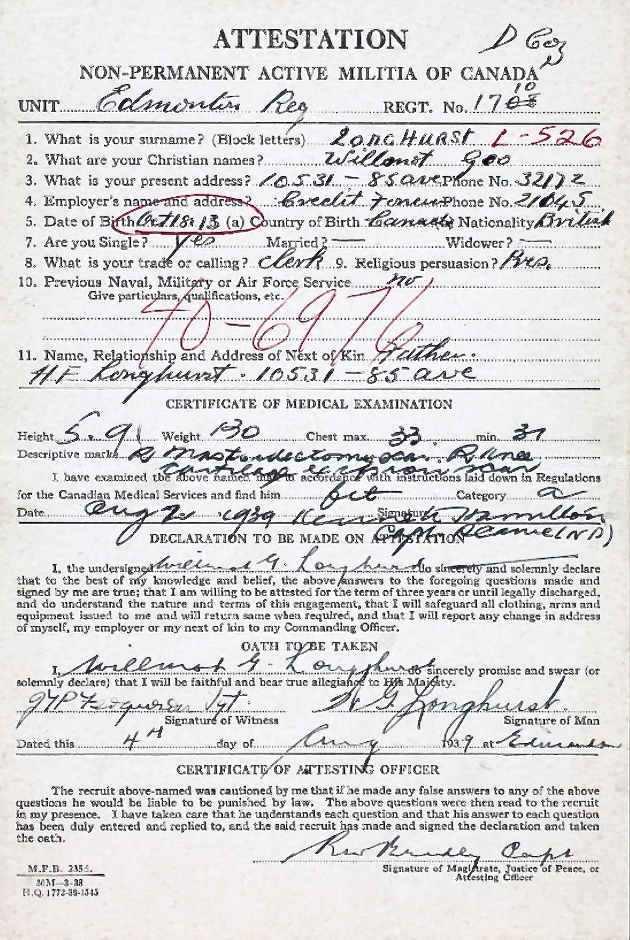 ATTESTATION D Coy
NON-PERMANENT ACTIVE MILITIA OF CANADA
UNIT Edmonton Reg REGT. No. 17 10
1. What is your surname? (Block letters) LONGHURST L-526
2. What are your Christian names? Willmot Geo
3. What is your present address? 10531-85 ave Phone No. 32172
4. Employer's name and address? Credit Phone No. 21645
5. Date of Birth Oct 18.13 (a) Country of Birth Canada Nationality British
7. Are you Single? Yes Married? — Widower? —
8. What is your trade or calling? Clerk 9. Religious persuasion? Pres.
10. Previous Naval, Military or Air Force Service no
Give particulars, qualifications, etc.
40-6976
11. Name, Relationship and Address of Next of Kin Father.
H F Longhurst. 10531-85 ave
CERTIFICATE OF MEDICAL EXAMINATION
Height 5.9½ Weight 130 Chest max. 33 min. 31
Descriptive marks R Mastoidectomy scar. R knee
cartilage excision scar
I have examined the above named man in accordance with instructions laid down in Regulations
for the Canadian Medical Services and find him fit Category a
Date Aug 2 1939 Signature Kenneth Hamilton
Capt (NP)
DECLARATION TO BE MADE ON ATTESTATION
I, the undersigned Willmot G. Longhurst do sincerely and solemnly declare
that to the best of my knowledge and belief, the above answers to the foregoing questions made and
signed by me are true; that I am willing to be attested for the term of three years or until legally discharged,
and do understand the nature and terms of this engagement, that I will safeguard all clothing, arms and
equipment issued to me and will return same when required, and that I will report any change in address
of myself, my employer or my next of kin to my Commanding Officer.
OATH TO BE TAKEN
I, Willmot G. Longhurst do sincerely promise and swear (or
solemnly declare) that I will be faithful and bear true allegiance to His Majesty.
Sgt. W G Longhurst.
Signature of Witness Signature of Man
Dated this 4th day of Aug 1939 at Edmonton
CERTIFICATE OF ATTESTING OFFICER
The recruit above-named was cautioned by me that if he made any false answers to any of the above
questions he would be liable to be punished by law. The above questions were then read to the recruit
in my presence. I have taken care that he understands each question and that his answer to each question
has been duly entered and replied to, and the said recruit has made and signed the declaration and taken
the oath.
Bradley Capt
Signature of Magistrate, Justice of Peace, or
Attesting Officer
M.F.B. 235A.
50M-3-38
H.Q. 1772-39-1545